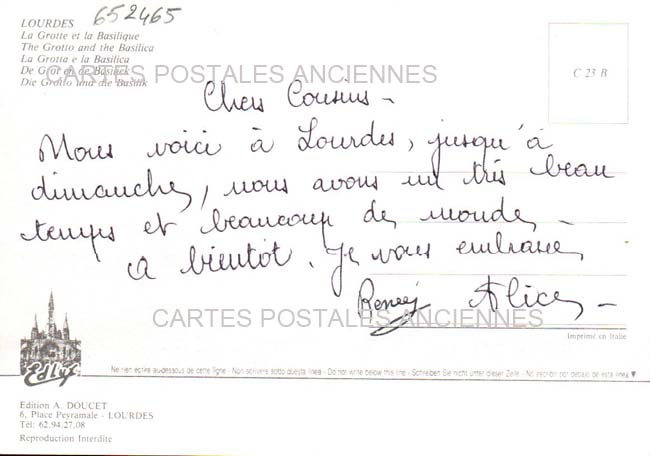 652465
LOURDES
La Grotte et la Basilique
The Grotto and the Basilica
La Grotta e la Basilica
De Grot en de Basiliek
Die Grotto und die Basilik
C 23 B
CARTES POSTALES ANCIENNES
Chers Cousins -
Nous voici à Lourdes, jusqu'à
dimanche, nous avons un très beau
temps et beaucoup de monde -
a bientôt. Je vous embrasse,
Renée Alice -
CARTES POSTALES ANCIENNES
Imprimé en Italie
Edlux
Ne rien écrire au-dessous de cette ligne - Non scrivere sotto questa linea - Do not write below this line - Schreiben Sie nicht unter dieser Zeile - No escribir por debajo de esta linea ▼
Edition A. DOUCET
6, Place Peyramale - LOURDES
Tél: 62.94.27.08
Reproduction Interdite